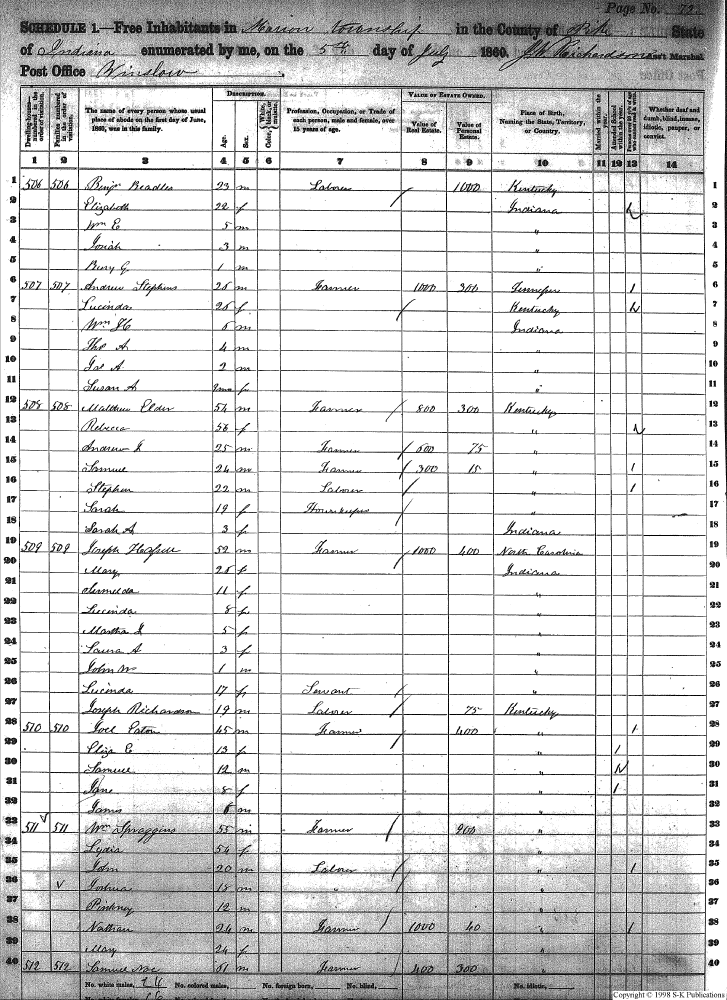 Page No. 72
SCHEDULE 1.—Free Inhabitants in Marion Township in the County of Pike State
of Indiana enumerated by me, on the 5th day of July 1860. Ass't Marshal
Post Office Winslow
DESCRIPTION. VALUE OF ESTATE OWNED.
Dwelling-houses—numbered in the order of visitation.
Families numbered in the order of visitation.
The name of every person whose usual place of abode on the first day of June, 1860, was in this family.
Age.
Sex.
Color, White, black, or mulatto.
Profession, Occupation, or Trade of each person, male and female, over 15 years of age.
Value of Real Estate.
Value of Personal Estate.
Place of Birth, Naming the State, Territory, or Country.
Married within the year.
Attended School within the year.
Whether deaf and dumb, blind, insane, idiotic, pauper, or convict.
1 2 3 4 5 6 7 8 9 10 11 12 13 14
1 506 506 Benj Beadles 23 m Laborer / 1000 Kentucky 1
2 Elizabeth 22 f Indiana 2
3 Wm E 5 m " 3
4 Josiah 3 m " 4
5 1 m " 5
6 507 507 Andrew Stephens 26 m Farmer 1000 300 Tennessee 1 6
7 Lucinda 26 f Kentucky 7
8 Wm H 6 m Indiana 8
9 Tho A 4 m " 9
10 A 2 m " 10
11 Susan A f " 11
12 508 508 Matthew Elder 54 m Farmer / 800 300 Kentucky 12
13 Rebecca 56 f " 13
14 Andrew J 25 m Farmer / 600 75 " 14
15 Samuel 24 m Farmer / 300 15 " 1 15
16 Stephen 22 m Laborer / " 1 16
17 Sarah 19 f Housekeeper " 17
18 Sarah A 3 f Indiana 18
19 509 509 Joseph 52 m Farmer / 1000 400 North Carolina 19
20 Mary 26 f Indiana 20
21 11 f " 21
22 Lucinda 8 f " 22
23 Martha J 5 f " 23
24 Laura A 3 f " 24
25 John W 1 m " 25
26 Lucinda 17 f Servant / " 26
27 Joseph Richardson 19 m Laborer / 75 Kentucky 27
28 510 510 Joel Eaton 45 m Farmer 400 " 1 28
29 Eliza E 13 f " 1 29
30 Samuel 12 m " 30
31 Jane 8 f " 1 31
32 James 6 m " 32
33 511 511 Wm Spraggins 55 m Farmer 900 " 33
34 Lydia 54 f " 34
35 John 20 m Laborer / " 1 35
36 Joshua 18 m " / " 36
37 Pinkney 12 m " 37
38 Nathan 24 m Farmer / 1000 40 " 1 38
39 Mary 24 f " 39
40 512 512 Samuel 61 m Farmer / 400 300 " 40
No. white males, 24 No. colored males, No. foreign born, No. blind, No. idiotic,
Copyright © 1998 S-K Publications